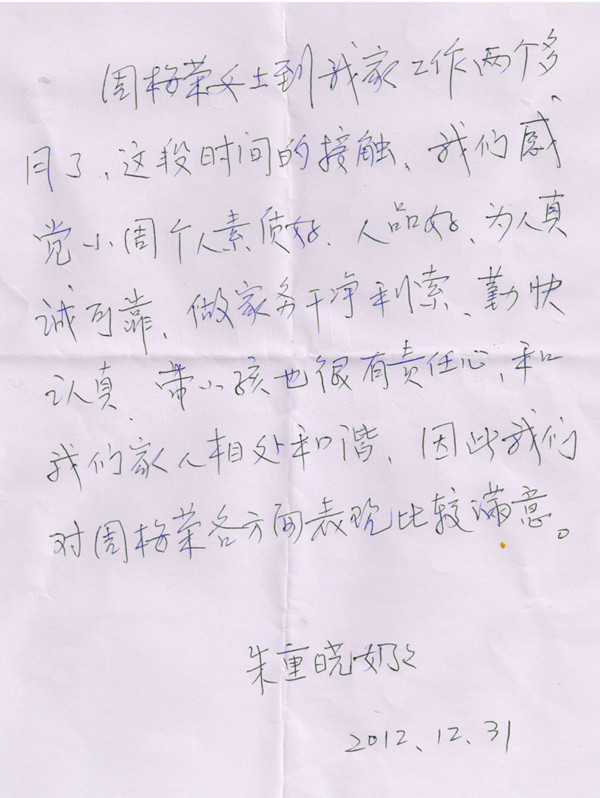 周梅荣女士到我家工作两个多
月了、这段时间的接触、我们感
觉小周个人素质好、人品好、为人真
诚可靠、做家务干净利索、勤快
认真、带小孩也很有责任心、和
我们家人相处和谐、因此我们
对周梅荣各方面表现比较满意。
朱重晓奶々
2012、12、31